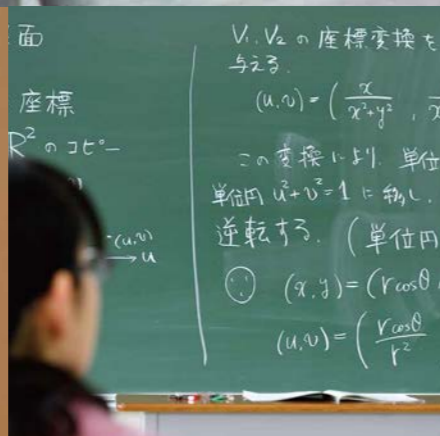 面
座標
R² のコピー
(u,v)
→ u
V₁, V₂ の座標変換を
与える.
(u,v) = ( x/(x²+y²) ,
この変換により, 単位
単位円 u²+v²=1 に移し,
逆転する. (単位円
∵ (x,y) = (r cosθ
(u,v) = ( r cosθ / r²